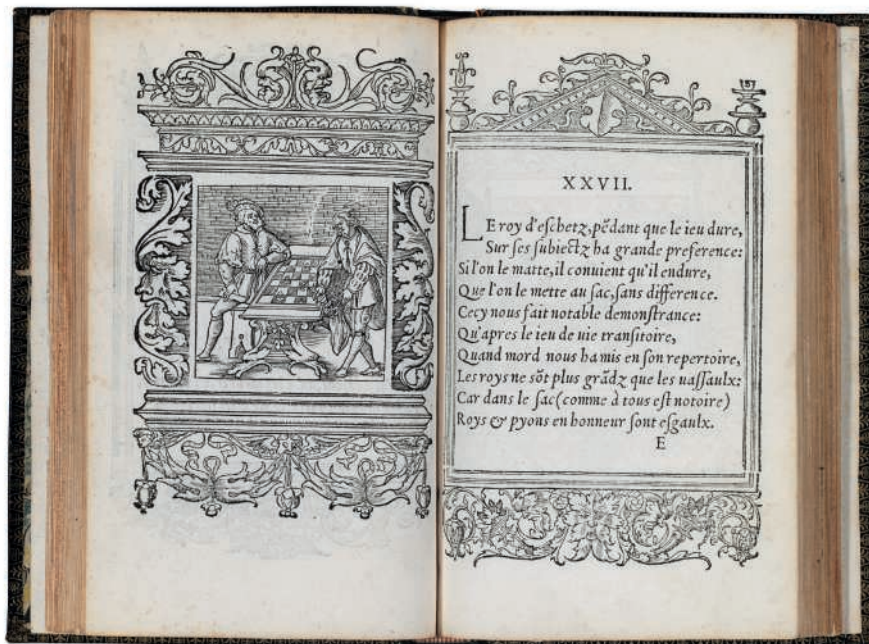 XXVII.
LE roy d'eſchetz, pēdant que le ieu dure,
Sur ſes ſubiectz ha grande preference:
Si l'on le matte, il conuient qu'il endure,
Que l'on le mette au ſac, ſans difference.
Cecy nous fait notable demonſtrance:
Qu'apres le ieu de vie tranſitoire,
Quand mord nous ha mis en ſon repertoire,
Les roys ne sōt plus grādz que les uaſſaulx:
Car dans le ſac (comme à tous eſt notoire)
Roys & pyons en honneur ſont eſgaulx.
E